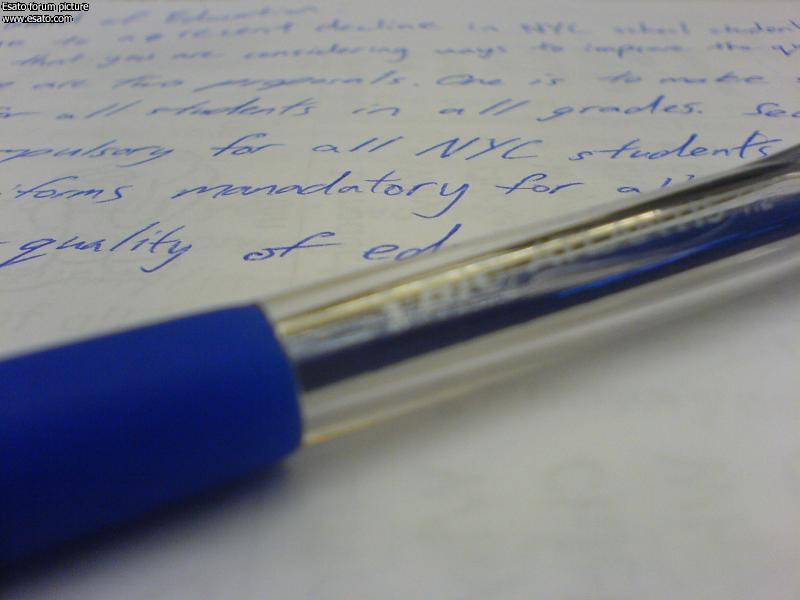 Esato forum picture
www.esato.com
of Education
to a recent decline in NYC school student
that you are considering ways to improve the qu
are two proposals. One is to make
for all students in all grades. Sec
mpulsory for all NYC students
iforms manadatory for al
quality of ed